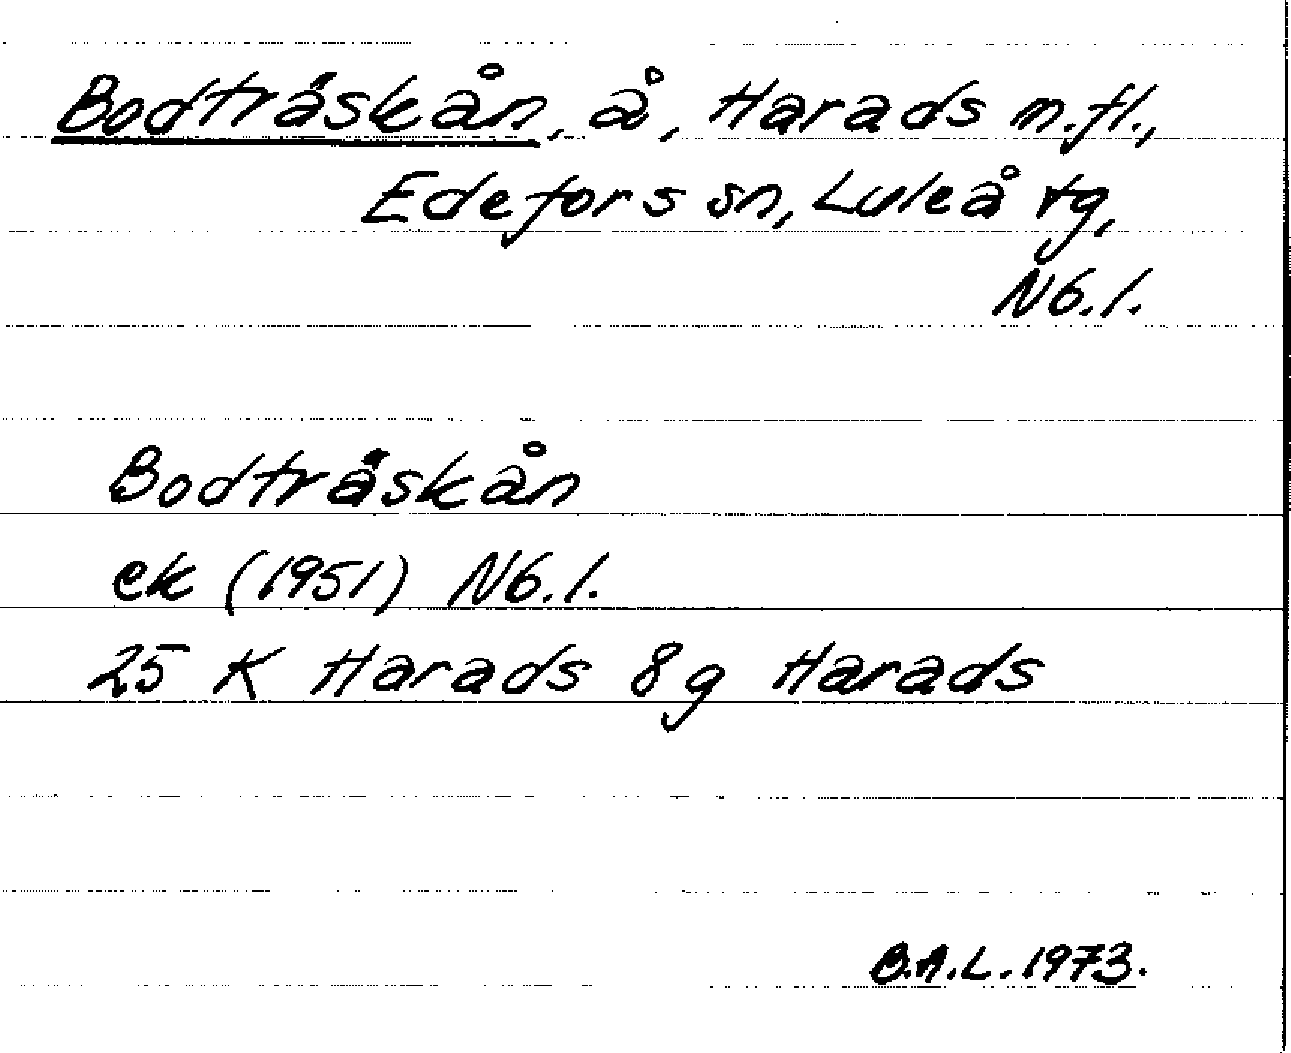 Bodträskån, å, Harads m.fl.,
Edefors sn, Luleå tg,
Nb.l.
Bodträskån
ek (1951) Nb.l.
25 K Harads 8g Harads
B.A.L. 1973.